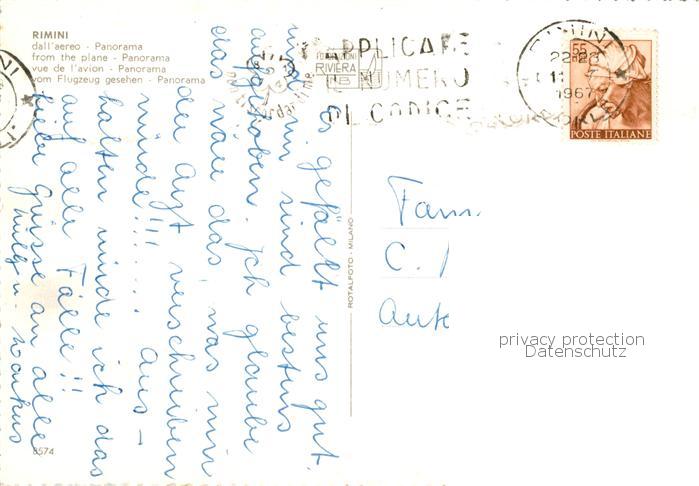 RIMINI
dall'aereo - Panorama
from the plane - Panorama
vue de l'avion - Panorama
vom Flugzeug gesehen - Panorama
Es gefällt uns gut.
und wir sind bestens
aufgehoben. Ich glaube
das wäre das, was mir
der Arzt verschreiben
würde!!! ..... Aus-
halten würde ich das
auf alle Fälle!!
Liebe Grüsse an alle
Willy u. Markus
8574
ROTALFOTO - MILANO
APPLICARE
NUMERO
DI CODICE
RIVIERA
RIMINI
22-23
1967
55
POSTE ITALIANE
Fam.
C.
privacy protection
Datenschutz